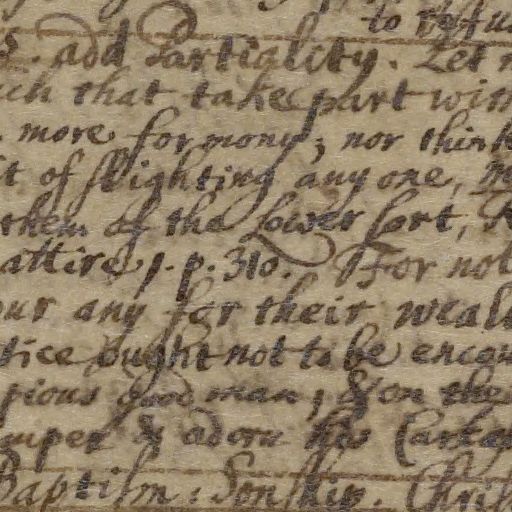 to refu
. add Partiality. Let
ch that take part with
more for mony; nor think
t of slighting any one,
them of the Lower sort,
attire, 1. p. 310. For not
our any for their weal
tice ought not to be encou
pious good man; & on the
mper & adorn his Carka
Baptism: Sonship. Chris